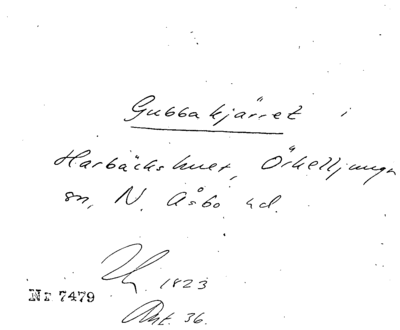 Gubbakjärret i
Harbäckshult, Örkelljunga
sn, N. Åsbo hd.
1823
Nr 7479
Ant. 36.